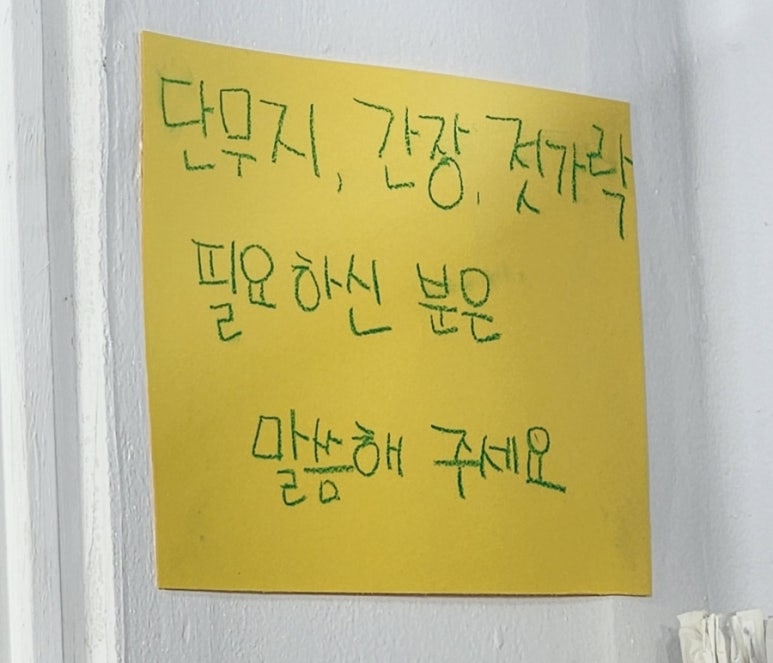 단무지, 간장, 젓가락
필요하신 분은
말씀해 주세요